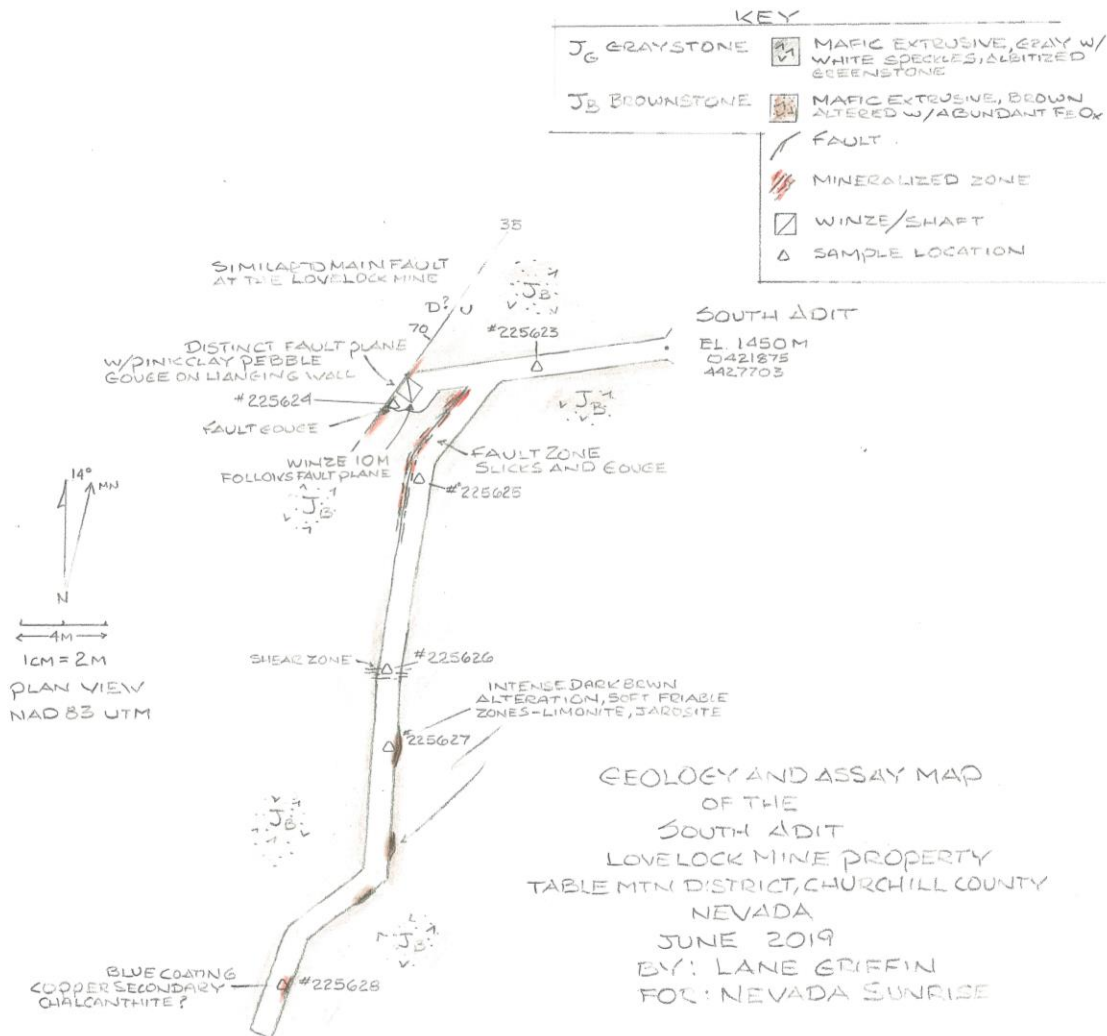 KEY
J_G GRAYSTONE
MAFIC EXTRUSIVE, GRAY W/
WHITE SPECKLES, ALBITIZED
GREENSTONE
J_B BROWNSTONE
MAFIC EXTRUSIVE, BROWN
ALTERED W/ABUNDANT FEOx
FAULT
MINERALIZED ZONE
WINZE/SHAFT
SAMPLE LOCATION
35
SIMILAR TO MAIN FAULT
AT THE LOVELOCK MINE
J_B
D? U
70
SOUTH ADIT
EL. 1450 M
0421875
4427703
#225623
DISTINCT FAULT PLANE
W/PINK CLAY PEBBLE
GOUGE ON HANGING WALL
#225624
FAULT GOUGE
J_B
WINZE 10M
FOLLOWS FAULT PLANE
FAULT ZONE
SLICKS AND GOUGE
#225625
J_B
14°
MN
N
4M
1CM = 2M
PLAN VIEW
NAD 83 UTM
SHEAR ZONE
#225626
INTENSE DARK BRWN
ALTERATION, SOFT FRIABLE
ZONES-LIMONITE, JAROSITE
#225627
J_B
J_B
GEOLOGY AND ASSAY MAP
OF THE
SOUTH ADIT
LOVELOCK MINE PROPERTY
TABLE MTN DISTRICT, CHURCHILL COUNTY
NEVADA
JUNE 2019
BY: LANE GRIFFIN
FOR: NEVADA SUNRISE
BLUE COATING
COPPER SECONDARY
CHALCANTHITE?
#225628